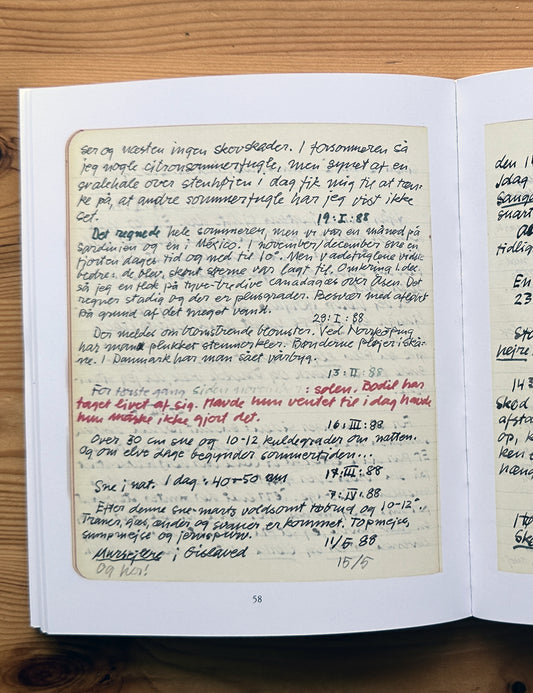 ser og næsten ingen skovskader. I forsommeren så
jeg nogle citronsommerfugle, men synet af en
svalehale over stenhøjen i dag fik mig til at tæn-
ke på, at andre sommerfugle har jeg vist ikke
set.
19:I:88
Det regnede hele sommeren, men vi var en måned på
Sardinien og en i México. I november/december sne en
fjorten dages tid og med til 10°. Men vadefuglene vidste
bedre: de blev, skønt søerne var lagt til. Omkring 1. dec.
så jeg en flok på tyve-tredive canadagæs over Åsen. Det
regner stadig og der er plusgrader. Besvær med afløbet
på grund af det meget vand.
29:I:88
Der meldes om blomstrende blomster. Ved Norrköping
har man plukket stenmorkler. Bønderne pløjer i Skå-
ne. I Danmark har man sået vårbyg.
13:II:88
For første gang siden : solen. Bodil har
taget livet af sig. Havde hun ventet til i dag havde
hun måske ikke gjort det.
16:III:88
Over 30 cm sne og 10-12 kuldegrader om natten.
Og om elve dage begynder sommertiden...
17:III:88
Sne i nat. I dag: 40-50 cm
7:IV:88
Efter denne sne-marts voldsomt tøbrud og 10-12°.
Traner, gæs, ænder og svaner er kommet. Topmejse,
sumpmejse og jernspurv.
11/5 88
Mursejlere i Gislaved
15/5
Og her!
58
den
Idag
Sange
snart
tidlig
En
23
Sto
hejre
143
Skod
afsta
op, k
ken
hæng